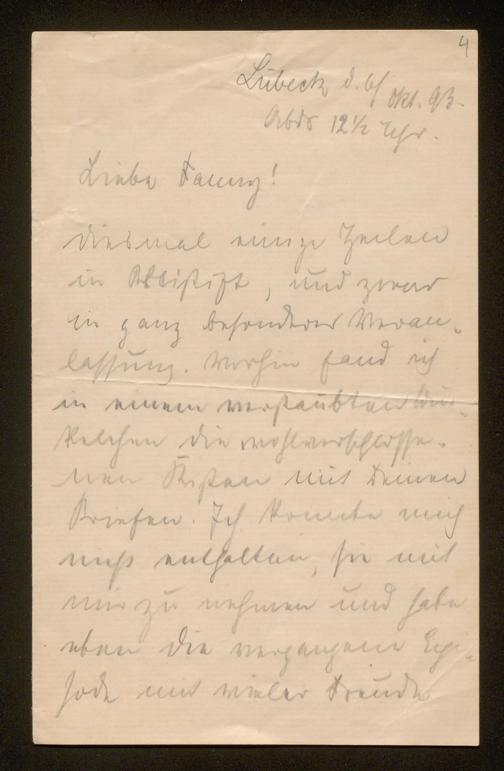 4
Lübeck d. 6/ Okt. 93.
Abds 12 1/2 Uhr.
Liebe Fanny!
Diesmal einige Zeilen
in Bleistift, und zwar
in ganz besonderer Veran-
lassung. Vorhin fand ich
in einem verstaubten Win-
kelchen die wohlverschlosse-
nen Kisten mit Deinen
Briefen. Ich konnte mich
nicht enthalten, sie mit
mir zu nehmen und habe
eben die vergangene Epi-
sode mit vieler Freude